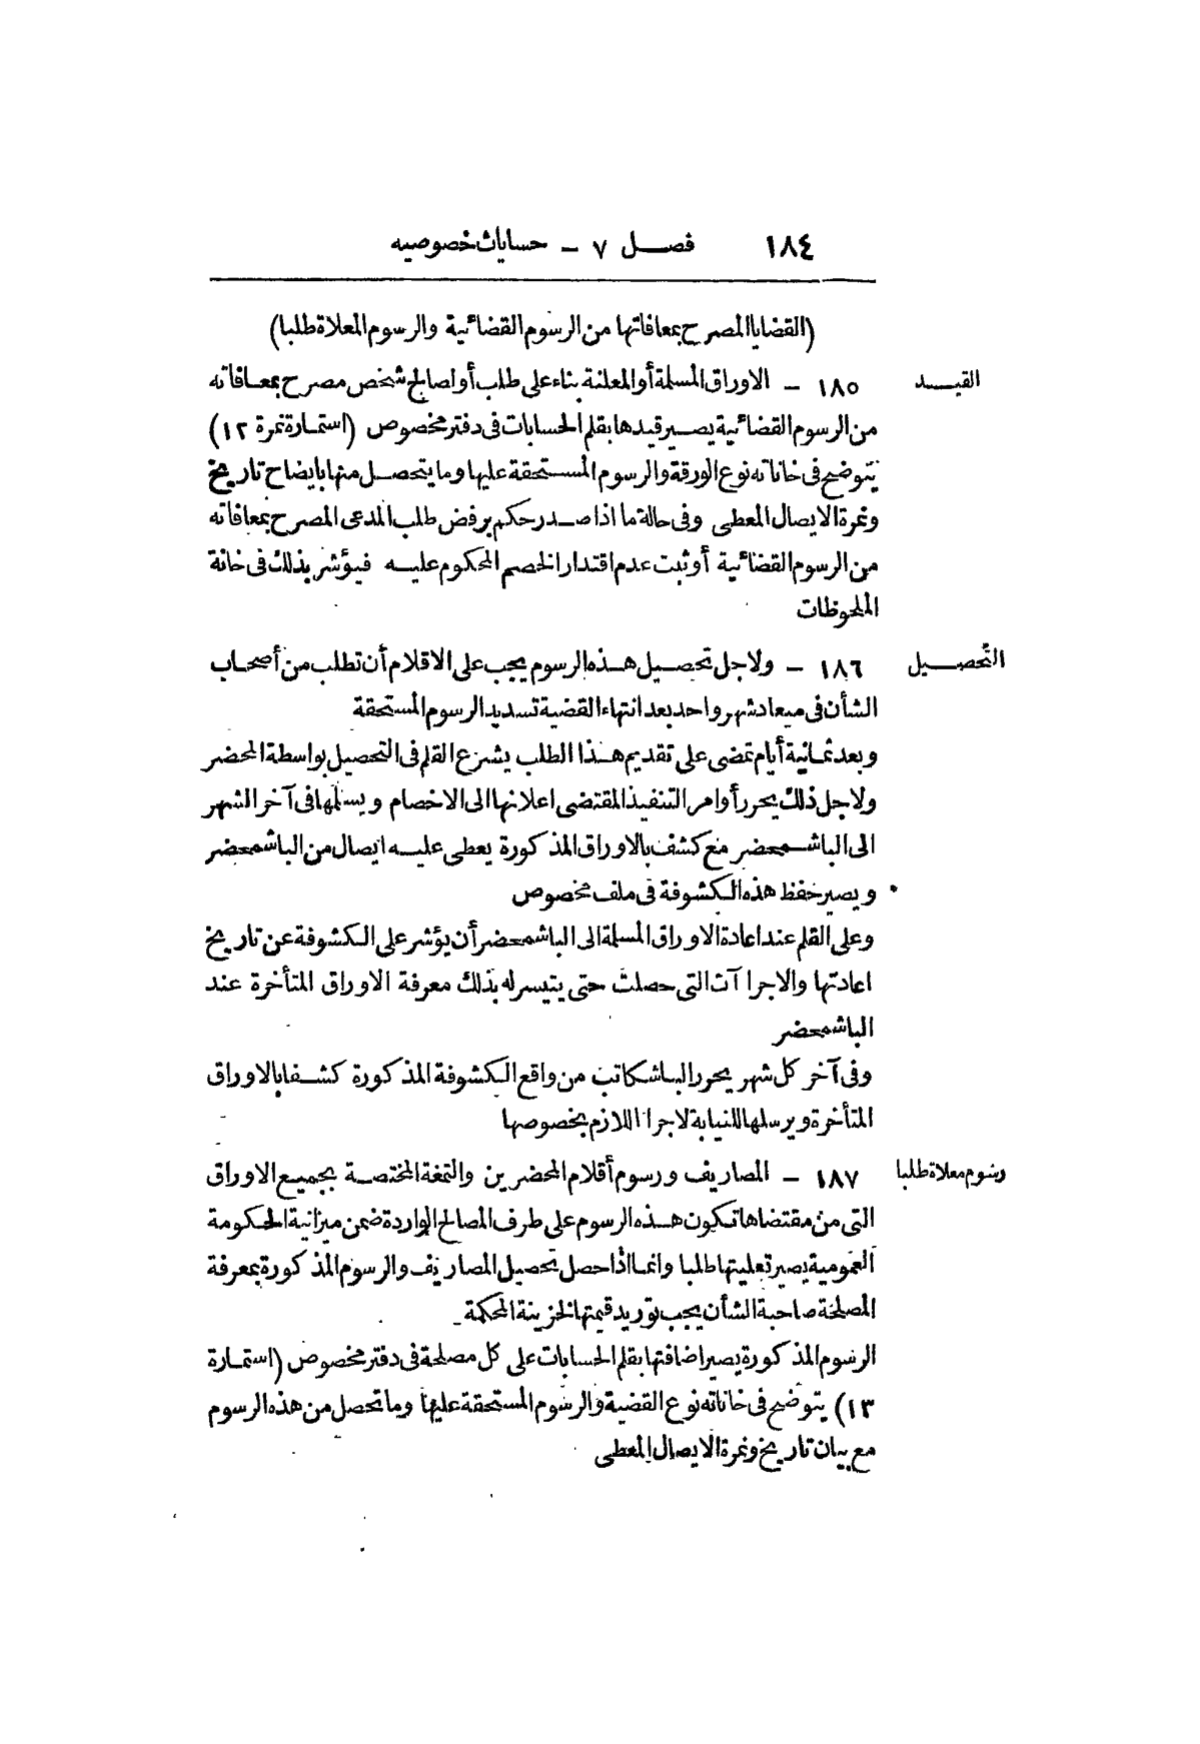 ١٨٤ فصل ٧ - حسابات خصوصيه
(القضايا المصرح بمعافاتها من الرسوم القضائية والرسوم المعلاة طلبا)
القيد
١٨٥ - الاوراق المسلمة أو المعلنة بناء على طلب أو لصالح شخص مصرح بمعافاته
من الرسوم القضائية يصير قيدها بقلم الحسابات فى دفتر مخصوص (استمارة نمرة ١٢)
يتوضح فى خاناته نوع الورقة والرسوم المستحقة عليها وما يتحصل منها بايضاح تاريخ
ونمرة الايصال المعطى وفى حالة ما اذا صدر حكم برفض طلب المدعى المصرح بمعافاته
من الرسوم القضائية أو ثبت عدم اقتدار الخصم المحكوم عليه فيؤشر بذلك فى خانة
الملحوظات
التحصيل
١٨٦ - ولاجل تحصيل هذه الرسوم يجب على الاقلام أن تطلب من أصحاب
الشأن فى ميعاد شهر واحد بعد انتهاء القضية تسديد الرسوم المستحقة
وبعد ثمانية أيام تمضى على تقديم هذا الطلب يشرع القلم فى التحصيل بواسطة المحضر
ولاجل ذلك يحرر أوامر التنفيذ المقتضى اعلانها الى الاخصام ويسلمها فى آخر الشهر
الى الباشمحضر مع كشف بالاوراق المذكورة يعطى عليه ايصال من الباشمحضر
ويصير حفظ هذه الكشوفة فى ملف مخصوص
وعلى القلم عند اعادة الاوراق المسلمة الى الباشمحضر أن يؤشر على الكشوفة عن تاريخ
اعادتها والاجراآت التى حصلت حتى يتيسر له بذلك معرفة الاوراق المتأخرة عند
الباشمحضر
وفى آخر كل شهر يحرر الباشكاتب من واقع الكشوفة المذكورة كشفا بالاوراق
المتأخرة ويرسلها للنيابة لاجرا اللازم بخصوصها
رسوم معلاة طلبا
١٨٧ - المصاريف ورسوم أقلام المحضرين والتمغة المختصة بجميع الاوراق
التى من مقتضاها تكون هذه الرسوم على طرف المصالح الواردة ضمن ميزانية الحكومة
العمومية يصير تعليتها طلبا وانما اذا حصل تحصيل المصاريف والرسوم المذكورة بمعرفة
المصلحة صاحبة الشأن يجب توريد قيمتها لخزينة المحكمة
الرسوم المذكورة يصير اضافتها بقلم الحسابات على كل مصلحة فى دفتر مخصوص (استمارة
١٣) يتوضح فى خاناته نوع القضية والرسوم المستحقة عليها وما تحصل من هذه الرسوم
مع بيان تاريخ ونمرة الايصال المعطى